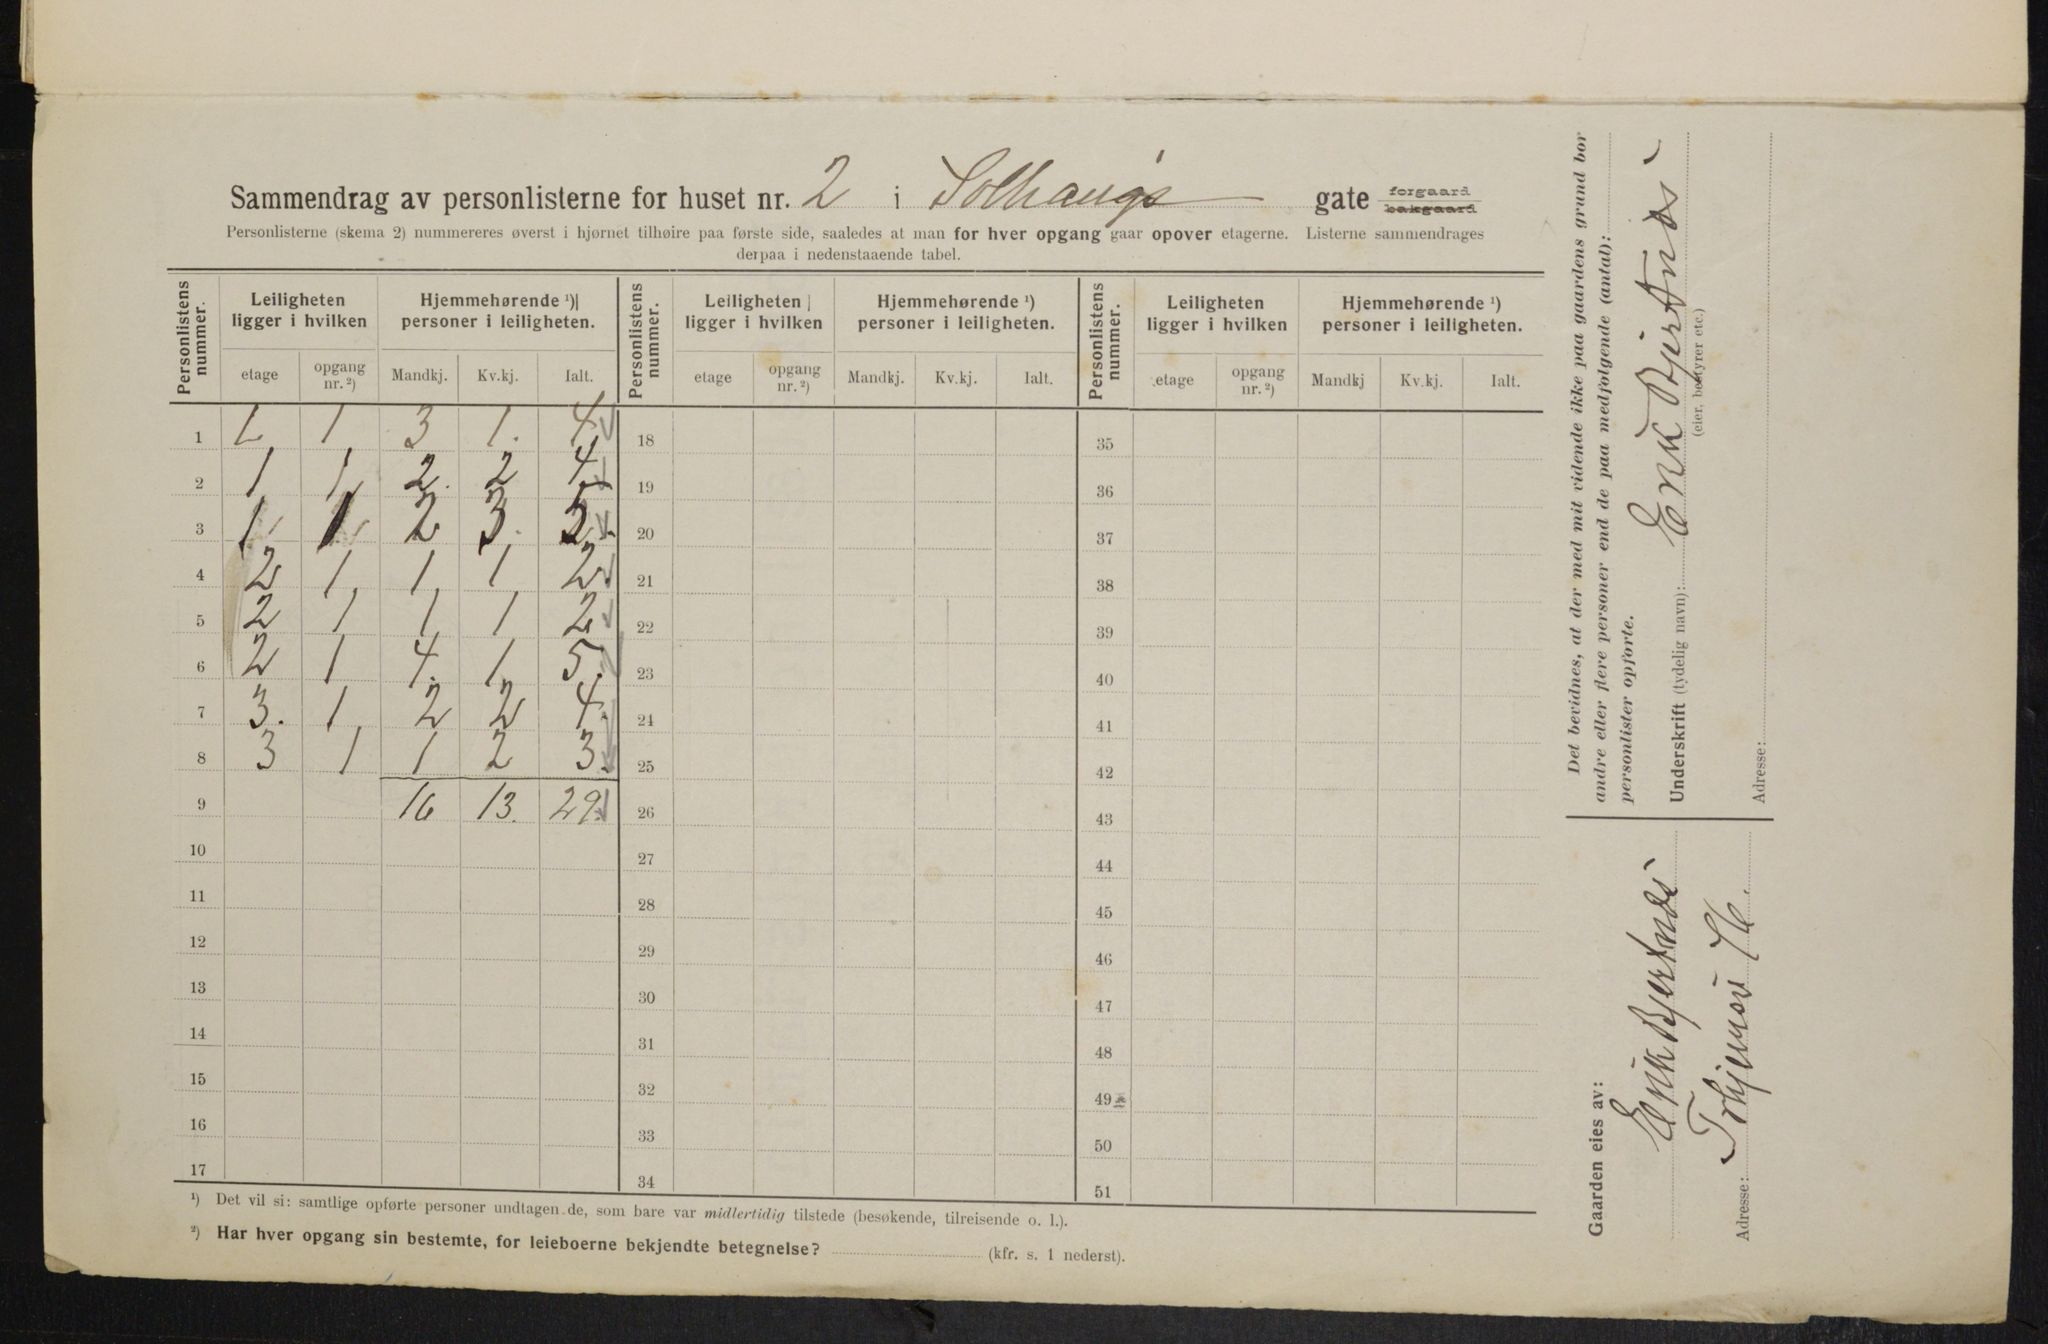 Sammendrag av personlisterne for huset nr. 2 i Solhaugs gate forgaard bakgaard
Personlisterne (skema 2) nummereres øverst i hjørnet tilhøire paa første side, saaledes at man for hver opgang gaar opover etagerne. Listerne sammendrages
derpaa i nedenstaaende tabel.
Personlistens nummer. Leiligheten ligger i hvilken Hjemmehørende ¹) personer i leiligheten. Personlistens nummer. Leiligheten ligger i hvilken Hjemmehørende ¹) personer i leiligheten. Personlistens nummer. Leiligheten ligger i hvilken Hjemmehørende ¹) personer i leiligheten.
etage opgang nr. ²) Mandkj. Kv.kj. Ialt. etage opgang nr. ²) Mandkj. Kv.kj. Ialt. etage opgang nr. ²) Mandkj Kv.kj. Ialt.
1 1 3 1. 4 18 35
2 1 1 2. 2 4. 19 36
3 1 1 2 3. 5. 20 37
4 2 1 1 1 2. 21 38
5 2 1 1 1 2 22 39
6 2 1 4. 1 5. 23 40
7 3. 1 2 2 4. 24 41
8 3 1 1 2 3. 25 42
9 16 13. 29. 26 43
10 27 44
11 28 45
12 29 46
13 30 47
14 31 48
15 32 49
16 33 50
17 34 51
¹) Det vil si: samtlige opførte personer undtagen de, som bare var midlertidig tilstede (besøkende, tilreisende o. l.).
²) Har hver opgang sin bestemte, for leieboerne bekjendte betegnelse? (kfr. s. 1 nederst).
Det bevidnes, at der med mit vidende ikke paa gaardens grund bor
andre eller flere personer end de paa medfølgende (antal):
personlister opførte.
Underskrift (tydelig navn): Erik Bjertnæs
(eier, bestyrer etc.)
Adresse:
Gaarden eies av:
Erik Bjertnæs
Adresse: